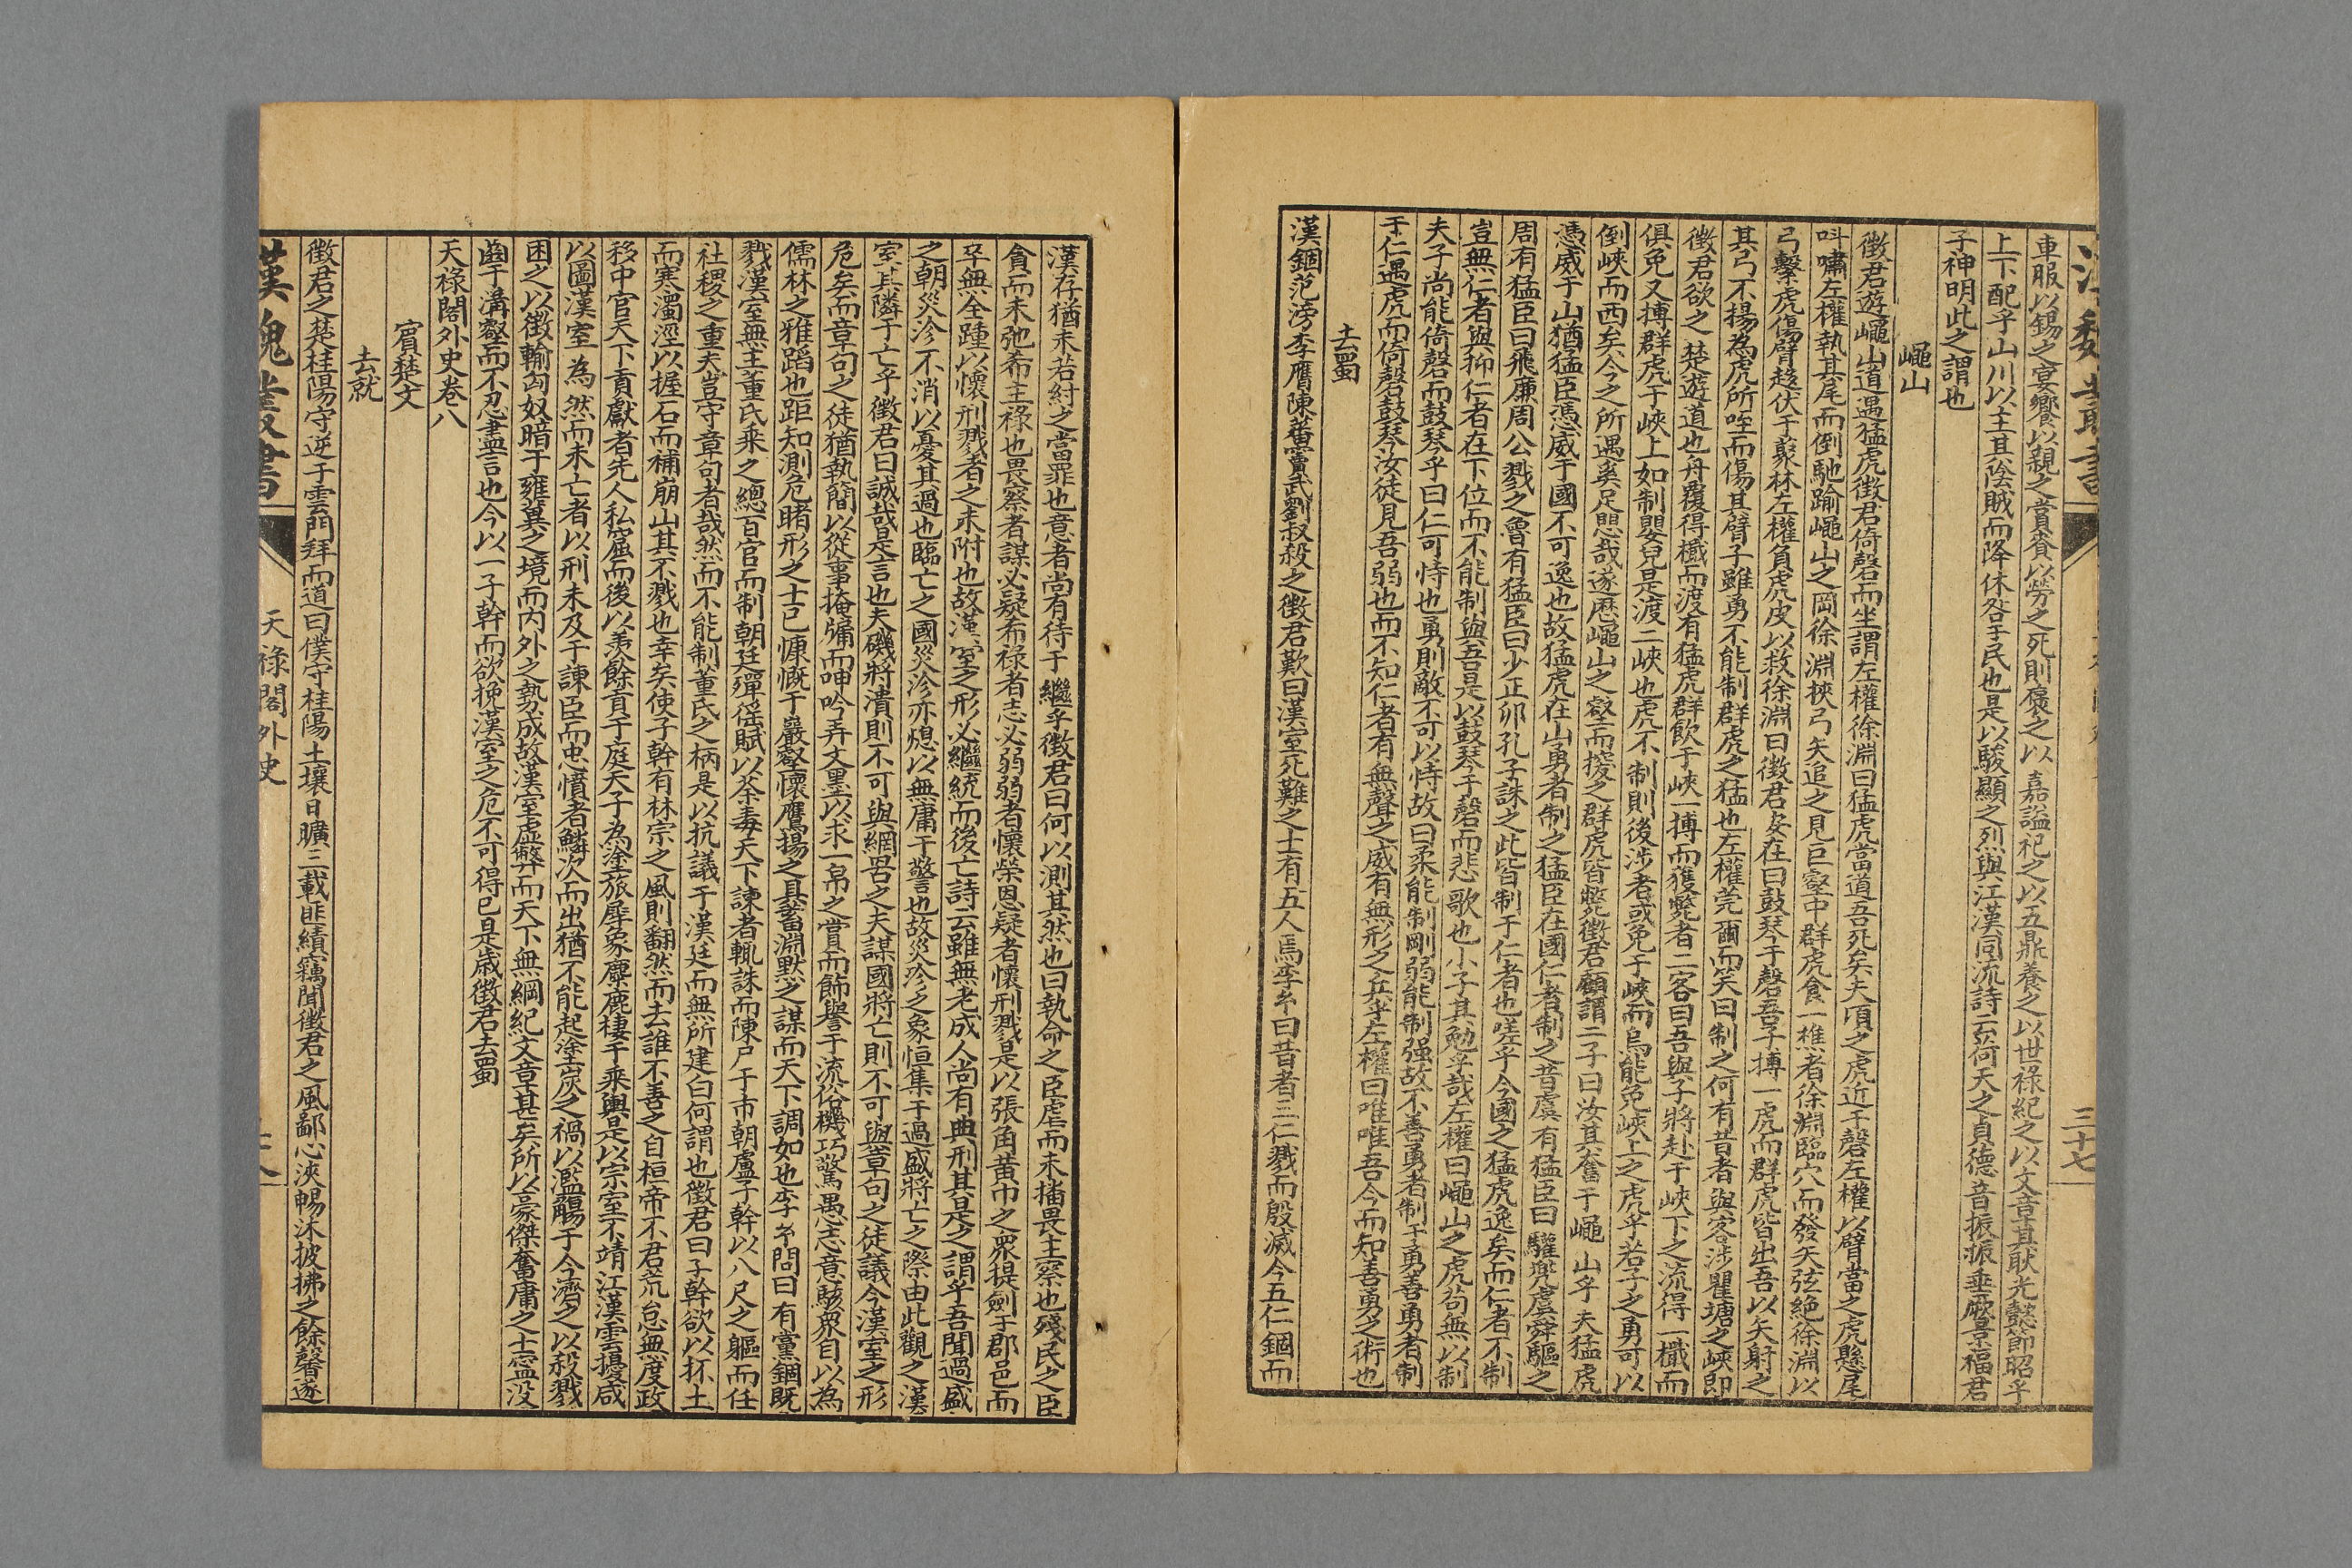 漢魏叢書
三十七
車服以錫之宴饗以親之賞賚以勞之死則褒之以嘉謚祀之以五鼎養之以世祿紀之以文章其耿光懿節昭乎
上下配乎山川以主其陰賊而降休咎于民也是以駿顯之烈與江漢同流詩云荷天之貞德音振振垂厥景福君
子神明此之謂也
繩山
徵君遊繩山道遇猛虎徵君倚磬而坐謂左權徐淵曰猛虎當道吾死矣夫頃之虎近于磬左權以臂當之虎懸尾
呌嘯左權執其尾而倒馳踰繩山之岡徐淵挾弓矢追之見巨壑中群虎食一樵者徐淵臨穴而發矢弦絕徐淵以
弓繫虎傷臂趍伏于藂林左權負虎皮以救徐淵曰徵君安在曰鼓琴于磬吾子搏一虎而群虎皆出吾以矢射之
其弓不揚為虎所咥而傷其臂子雖勇不能制群虎之猛也左權莞爾而笑曰制之何有昔者與客涉瞿塘之峽即
徵君欲之楚遊道也舟覆得櫼而渡有猛虎群飲于峽一搏而獲斃者二客曰吾與子將赴于峽下之流得一櫼而
俱免又搏群虎于峽上如制嬰兒是渡二峽也虎不制則後涉者或免于峽而烏能免峽上之虎乎若子之勇可以
倒峽而西矣今之所遇奚足思哉遂歷繩山之壑而搜之群虎皆斃徵君顧謂二子曰汝其奮于繩山乎夫猛虎
憑威于山猶猛臣憑威于國不可逸也故猛虎在山勇者制之猛臣在國仁者制之昔虞有猛臣曰驩兜虞舜驅之
周有猛臣曰飛廉周公戮之魯有猛臣曰少正卯孔子誅之此皆制于仁者也嗟乎今國之猛虎逸矣而仁者不制
豈無仁者與抑仁者在下位而不能制與吾是以鼓琴于磬而悲歌也小子其勉乎哉左權曰繩山之虎苟無以制
夫子尚能倚磬而鼓琴乎曰仁可恃也勇則敵不可以恃故曰柔能制剛弱能制强故不善勇者制于勇善勇者制
于仁遇虎而倚磬鼓琴汝徒見吾弱也而不知仁者有無聲之威有無形之兵乎左權曰唯唯吾今而知善勇之術也
去蜀
漢錮范滂李膺陳蕃竇武劉叔殺之徵君歎曰漢室死難之士有五人焉李糸曰昔者三仁戮而殷滅今五仁錮而
漢存猶未若紂之當罪也意者尚有待于繼乎徵君曰何以測其然也曰執命之臣虐而未播畏主察也殘民之臣
貪而未弛希主祿也畏察者謀必疑希祿者志必弱弱者懷榮恩疑者懷刑戮是以張角黃巾之衆提劍于郡邑而
卒無全踵以懷刑戮者之未附也故漢室之形必繼統而後亡詩云雖無老成人尚有典刑其是之謂乎吾聞過盛
之朝災沴不消以憂其過也臨亡之國災沴亦熄以無庸于警也故災沴之象恒集于過盛將亡之際由此觀之漢
室其隣于亡乎徵君曰誠哉是言也夫磯將潰則不可與網罟之夫謀國將亡則不可與章句之徒議今漢室之形
危矣而章句之徒猶執簡以從事掩牖而呻吟弄文墨以求一帛之賞而飾譽于流俗機巧驚愚志意駭衆自以為
儒林之雅蹈也距知測危睹形之士已慷慨于巖壑懷鷹揚之具蓄淵默之謀而天下調如也李糸問曰有黨錮既
戮漢室無主董氏乘之總百官而制朝廷殫徭賦以荼毒天下諫者輒誅而陳尸于市朝盧子幹以八尺之軀而任
社稷之重夫豈守章句者哉然而不能制董氏之柄是以抗議于漢廷而無所建白何謂也徵君曰子幹欲以抔土
而寒濁涇以握石而補崩山其不戮也幸矣使子幹有林宗之風則翻然而去誰不善之自桓帝不君荒怠無度政
移中官天下貢獻者先人私窟而後以羨餘貢于庭天子為塗旅犀象麋鹿棲于乘輿是以宗室不靖江漢雲擾咸
以圖漢室為然而未亡者以刑未及于諫臣而忠憤者鱗次而出猶不能起塗炭之禍以濫觴于今濟之以殺戮
困之以徵輸匈奴暗于雍冀之境而內外之勢成故漢室虛弊而天下無綱紀文章甚矣所以豪傑奮庸之士寧沒
齒于溝壑而不忍盡言也今以一子幹而欲挽漢室之危不可得已是歲徵君去蜀
天祿閣外史卷八
賓楚文
去就
徵君之楚桂陽守逆于雲門拜而道曰僕守桂陽土壤日曠三載匪績竊聞徵君之風鄙心浹暢沐披拂之餘馨遂
漢魏叢書
天祿閣外史